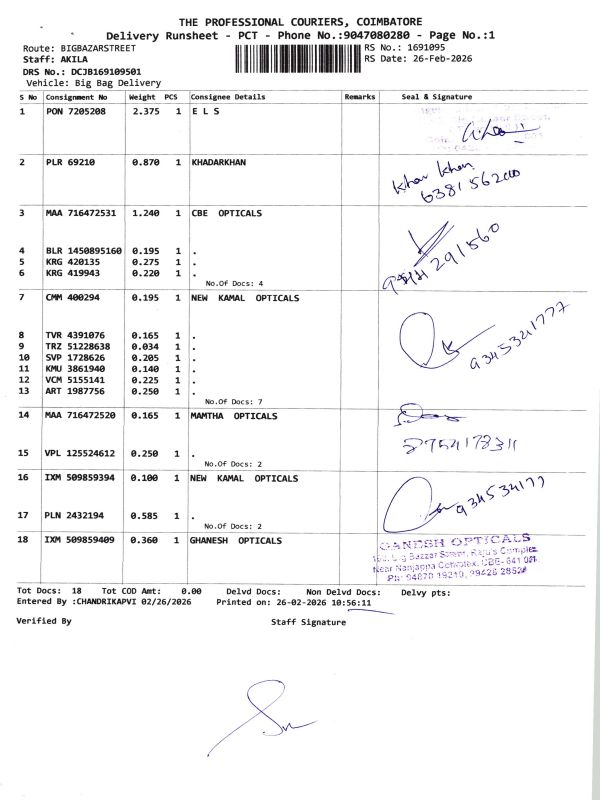 THE PROFESSIONAL COURIERS, COIMBATORE
Delivery Runsheet - PCT - Phone No.:9047080280 - Page No.:1
Route: BIGBAZARSTREET RS No.: 1691095
Staff: AKILA RS Date: 26-Feb-2026
DRS No.: DCJB169109501
Vehicle: Big Bag Delivery
S No Consignment No Weight PCS Consignee Details Remarks Seal & Signature
1 PON 7205208 2.375 1 E L S
2 PLR 69210 0.870 1 KHADARKHAN
Khar Khan
3 MAA 716472531 1.240 1 CBE OPTICALS
4 BLR 1450895160 0.195 1 .
5 KRG 420135 0.275 1 .
6 KRG 419943 0.220 1 .
No.Of Docs: 4
7 CMM 400294 0.195 1 NEW KAMAL OPTICALS
9345341777
8 TVR 4391076 0.165 1 .
9 TRZ 51228638 0.034 1 .
10 SVP 1728626 0.205 1 .
11 KMU 3861940 0.140 1 .
12 VCM 5155141 0.225 1 .
13 ART 1987756 0.250 1 .
No.Of Docs: 7
14 MAA 716472520 0.165 1 MAMTHA OPTICALS
15 VPL 125524612 0.250 1 .
No.Of Docs: 2
16 IXM 509859394 0.100 1 NEW KAMAL OPTICALS
17 PLN 2432194 0.585 1 .
No.Of Docs: 2
18 IXM 509859409 0.360 1 GHANESH OPTICALS
GANESH OPTICALS
Big Bazzar Street, Raju's Complex
Near Nanjappa Complex, CBE- 641 001.
Ph: 94870 19210, 99426 28524
Tot Docs: 18 Tot COD Amt: 0.00 Delvd Docs: Non Delvd Docs: Delvy pts:
Entered By :CHANDRIKAPVI 02/26/2026 Printed on: 26-02-2026 10:56:11
Verified By Staff Signature